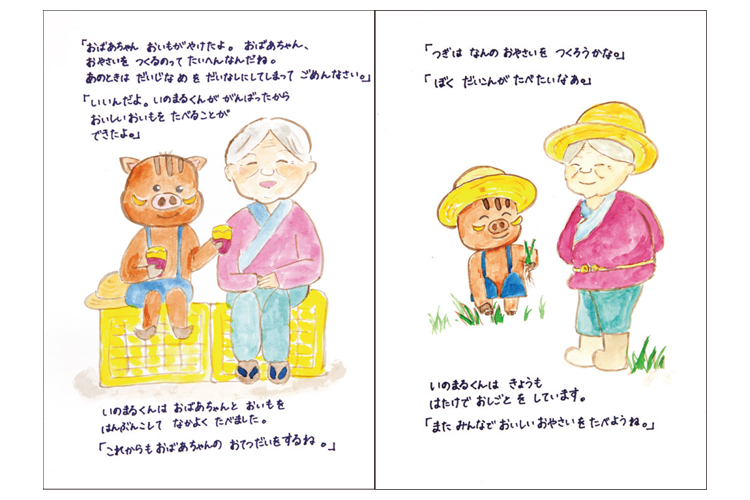 「おばあちゃん おいもがやけたよ。 おばあちゃん、
おやさいを つくるのって たいへんなんだね。
あのときは だいじな め を だいなしにしてしまって ごめんなさい。」
「いいんだよ。いのまるくんが がんばったから
おいしいおいもを たべることが
できたよ。」
いのまるくんは おばあちゃんと おいもを
はんぶんこして なかよく たべました。
「これからも おばあちゃんの おてつだいをするね 。」
「つぎは なんの おやさいを つくろうかな。」
「ぼく だいこんが たべたいなあ。」
いのまるくんは きょうも
はたけで おしごと を しています。
「また みんなで おいしい おやさいを たべようね。」